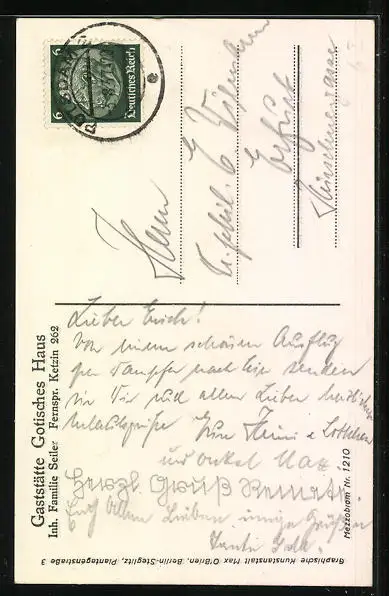 Gaststätte Gotisches Haus
Inh. Familie Seiler Fernspr. Ketzin 262
6 Deutsches Reich 6
POTSDAM
e
Herrn
Erfurt
Lieber Erich!
Von einem schönen Ausflug
per Dampfer nach hier senden
wir Dir und allen Lieben herzliche
Urlaubsgrüße
und Onkel Max
Herzl. Gruß
Euch allen Lieben innige Grüße
Tante
Mezzobrom Nr. 1210
Graphische Kunstanstalt Max O'Brien, Berlin-Steglitz, Plantagenstraße 3